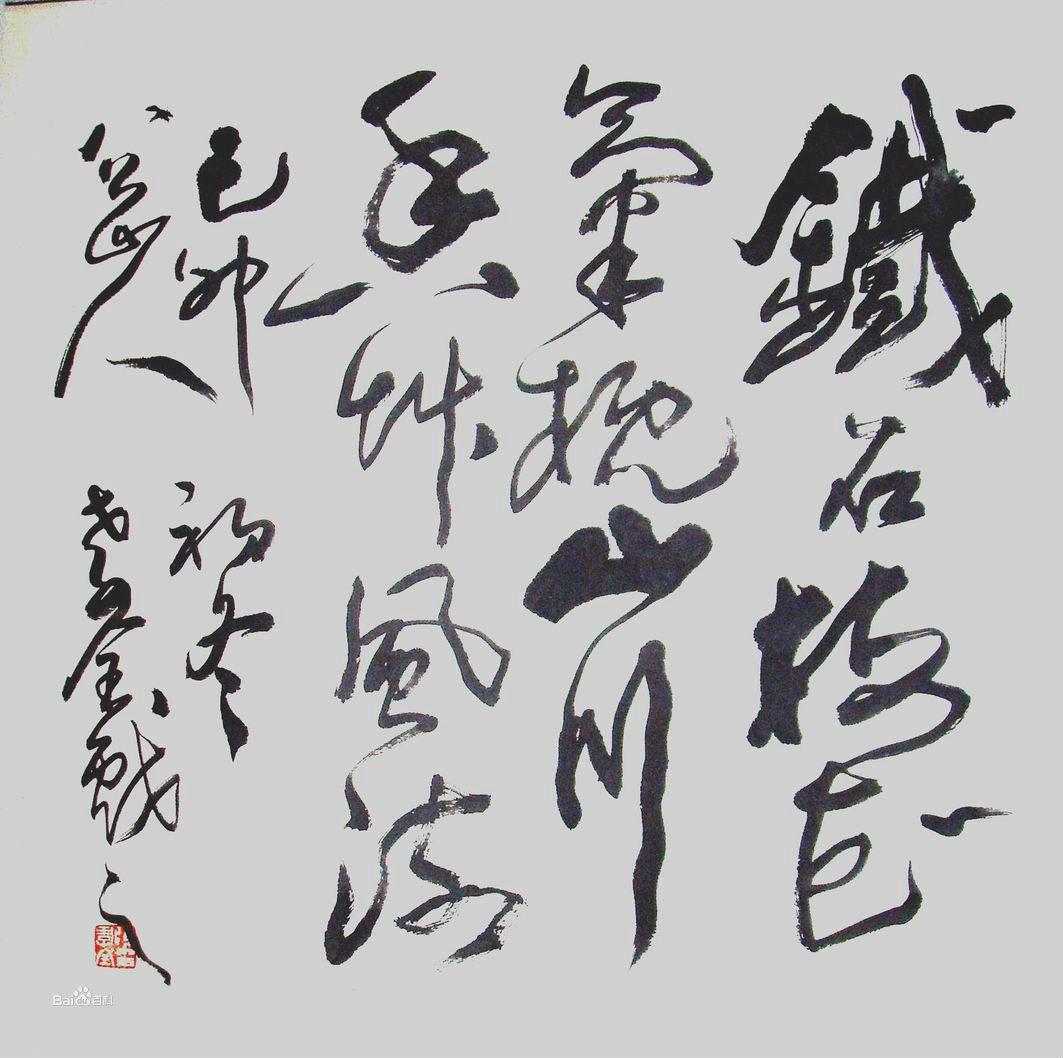 鐵石梅花
氣概山川
香艸風流
己卯初冬
八公山人
Bai百科